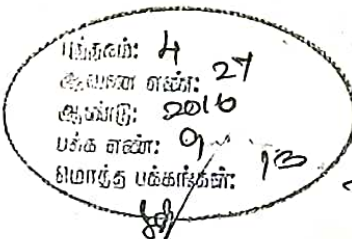 புத்தகம்: 4
ஆவண எண்: 27
ஆண்டு: 2016
பக்க எண்: 9
மொத்த பக்கங்கள்: 13